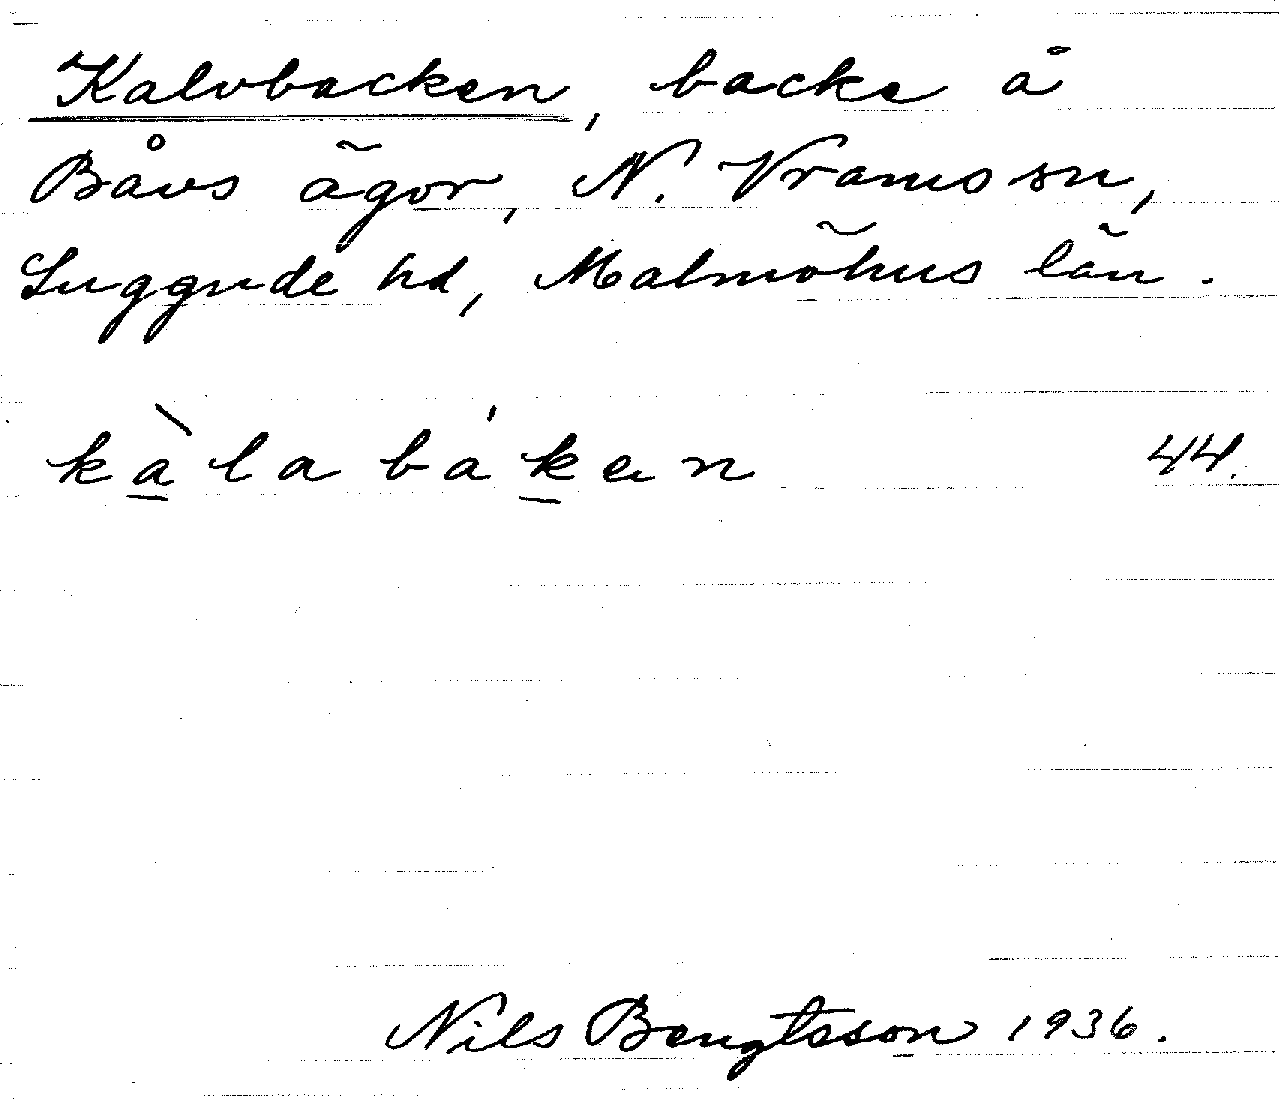 Kalvbacken, backe å
Båvs ägor, N. Vrams sn,
Luggude hd, Malmöhus län.
kàlabákan 44.
Nils Bengtsson 1936.